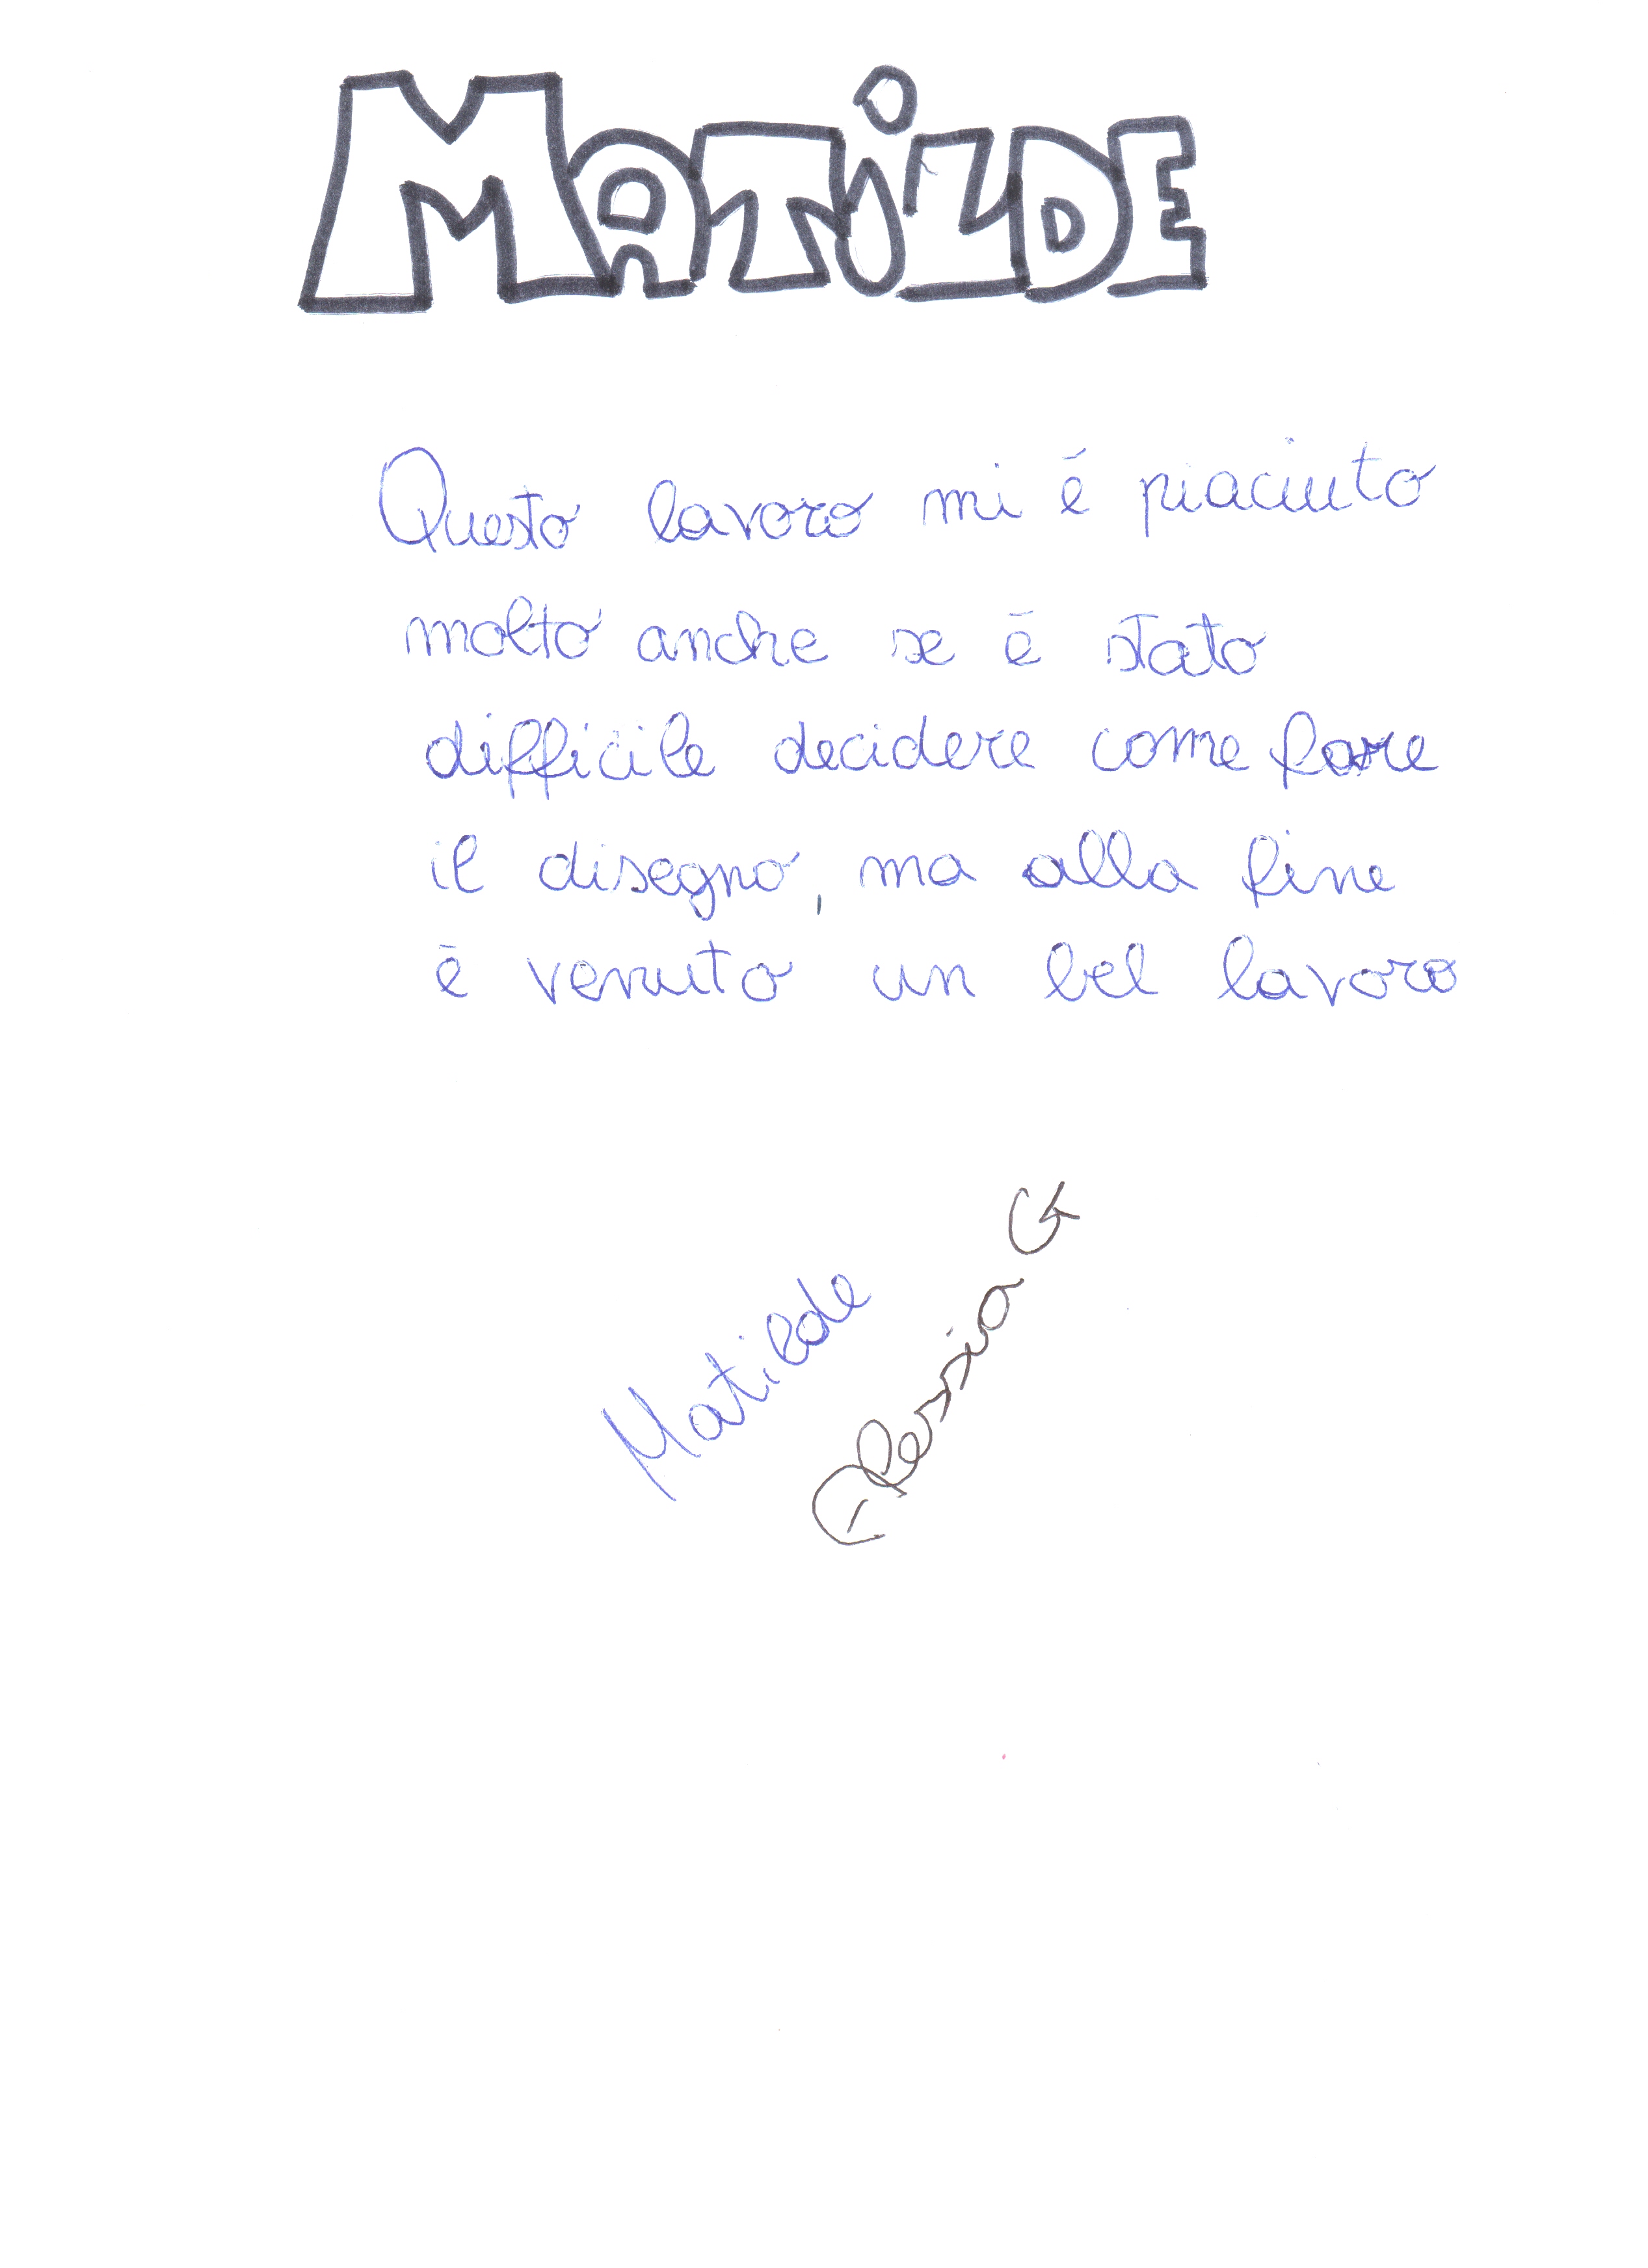 MATiLDE
Questo lavoro mi é piaciuto
molto anche se é stato
difficile decidere come fare
il disegno, ma alla fine
é venuto un bel lavoro
Matilde
Alessia G